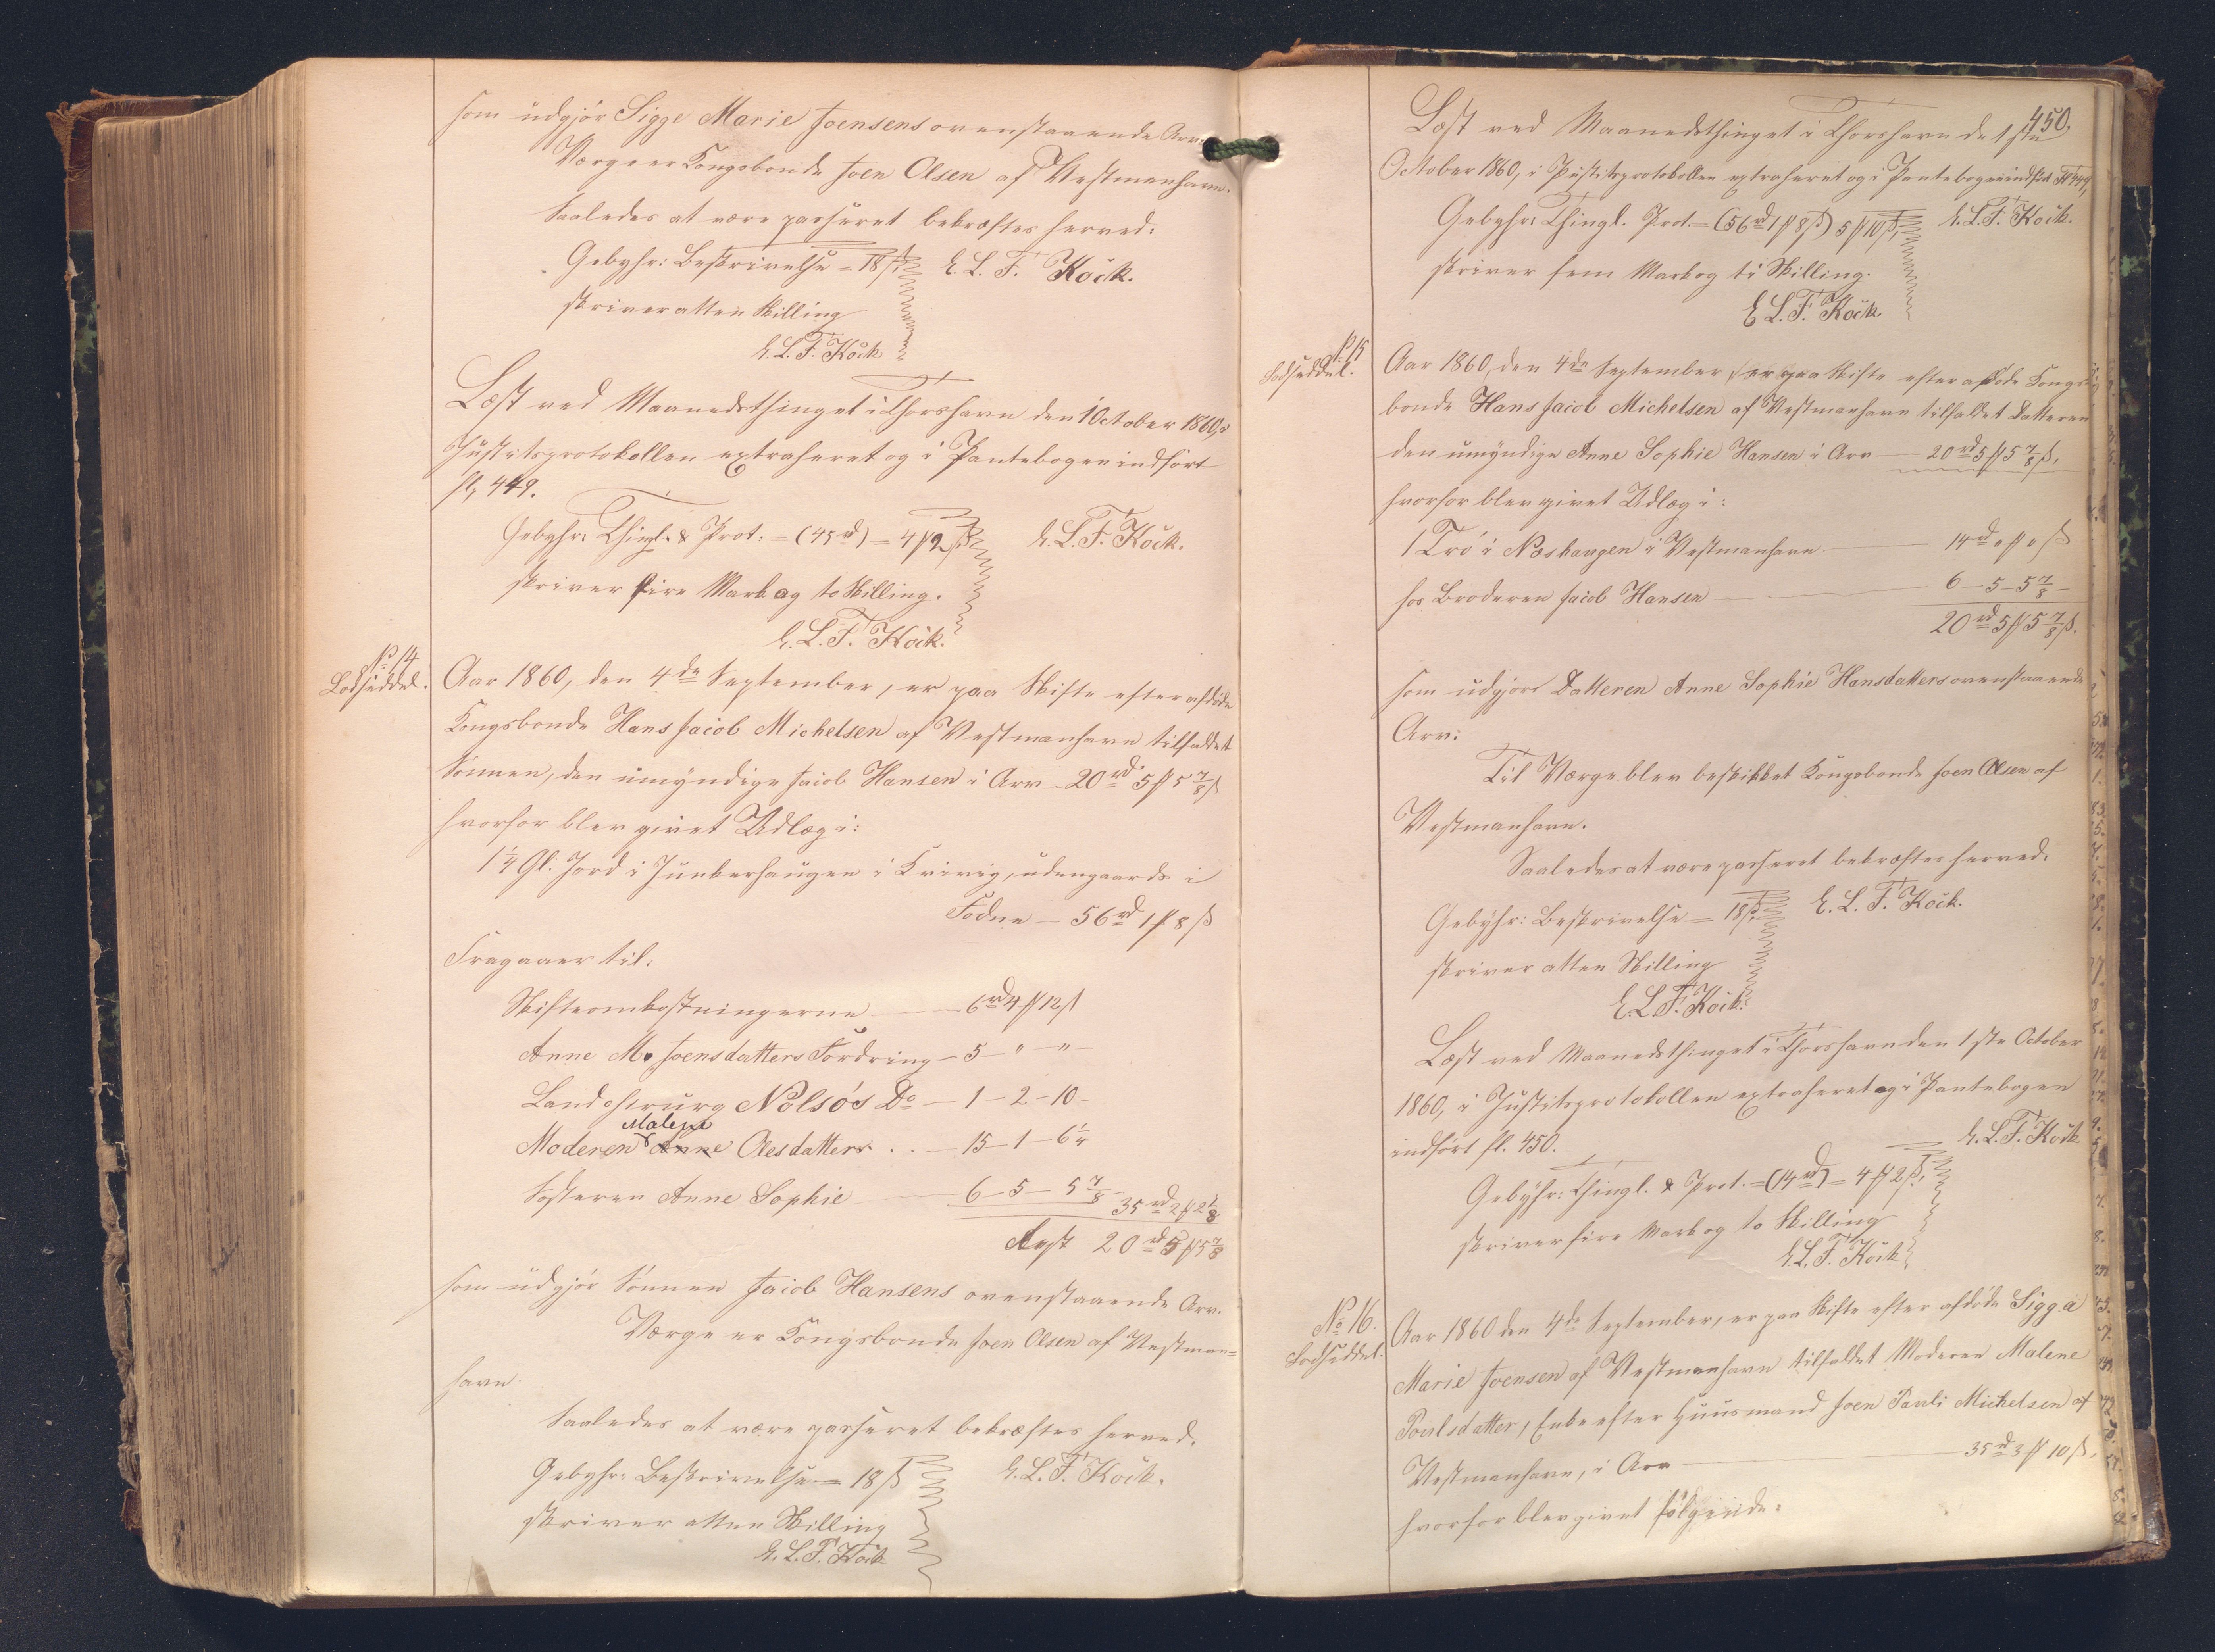 som udgjör Sigge Marie Joensens ovenstaaende Arv.
Værge er Kongsbonde Joen Olsen af Vestmanhavn.
Saaledes at være passeret bekræftes herved:
Gebyhr: Beskrivelse = 18 ß E. L. F. Köck.
skriver atten Skilling
E. L. F. Köck
Læst ved Maanedsthinget i Thorshavn den 1 October 1860, i
Justitsprotokollen extraheret og i Pantebogen indfört
fl, 449.
Gebyhr: Thingl. & Prot: = (45 rd) = 4 ℳ 2 ß E. L. F. Köck.
skriver fire Mark og to Skilling.
E. L. F. Köck.
No 14
Lodseddel.
Aar 1860, den 4de September, er paa Skifte efter afdöde
Kongsbonde Hans Jacob Michelsen af Vestmanhavn tilfaldet
Sönnen, den umyndige Jacob Hansen i Arv - 20 rd 5 ℳ 5 7/8 ß
hvorfor blev givet Udlæg i:
1 1/4 Gl. Jord i Junkerhaugen i Kvivig, udengaards i
Fodne - 56 rd 1 ℳ 8 ß
Fragaaer til:
Skifteomkostningerne - 6 rd 4 ℳ 12 ß
Anne M. Joensdatters Fordring - 5 - " - " -
Landchirurg Nolsö's Do - 1 - 2 - 10 -
Malene
Moderen Anne Olesdatters . . - 15 - 1 - 6 1/4
Sösteren Anne Sophie 6 - 5 - 5 7/8 - 35 rd 2 ℳ 2 1/8
Rest 20 rd 5 ℳ 5 7/8
som udgjör Sönnen Jacob Hansens ovenstaaende Arv.
Værge er Kongsbonde Joen Olsen af Vestman=
havn.
Saaledes at være passeret bekræftes herved.
Gebyhr: Beskrivelse = 18 ß E. L. F. Köck.
skriver atten Skilling
E. L. F. Köck
450.
Læst ved Maanedsthinget i Thorshavn de 1ste
October 1860, i Justitsprotokollen extraheret og i Pantebogen indfört Fl 449,
Gebyhr: Thingl. Prot. = (56 rd 1 ℳ 8 ß) 5 ℳ 10 ß, E. L. F. Köck.
skriver fem Mark og ti Skilling.
E. L. F. Köck.
No 15
Lodseddel.
Aar 1860, den 4de September, er paa Skifte efter afdöde Kongs
bonde Hans Jacob Michelsen af Vestmanhavn tilfaldet Datteren
den umyndige Anne Sophie Hansen i Arv - 20 rd 5 ℳ 5 7/8 ß,
hvorfor blev givet Udlæg i:
1 Tró i Noshaugen i Vestmanhavn - 14 rd " ℳ " ß
hos Broderen Jacob Hansen - 6 - 5 - 5 7/8 -
20 rd 5 ℳ 5 7/8 ß.
som udgjör Datteren Anne Sophie Hansdatters ovenstaaende
Arv:
Til Værge blev beskikket Kongsbonde Joen Olsen af
Vestmanhavn.
Saaledes at være passeret bekræftes herved.
Gebyhr: Beskrivelse = 18 ß. E. L. F. Köck.
skriver atten Skilling
E. L. F. Köck.
Læst ved Maanedsthinget i Thorshavn den 1ste October
1860, i Justitsprotokollen extraheret og i Pantebogen
indfört fl. 450. E. L. F. Köck
Gebyhr: Thingl. & Prot. = (14 rd) = 4 ℳ 2 ß,
skriver fire Mark og to Skilling
E. L. F. Köck
No 16.
Lodseddel.
Aar 1860 den 4de September, er paa Skifte efter afdöde Sigga
Marie Joensen af Vestmanhavn tilfaldet Moderen Malene
Poulsdatter, Enke efter Huusmand Joen Pauli Michelsen af
Vestmanhavn, i Arv - 35 rd 3 ℳ 10 ß,
hvorfor blev givet fölgende: